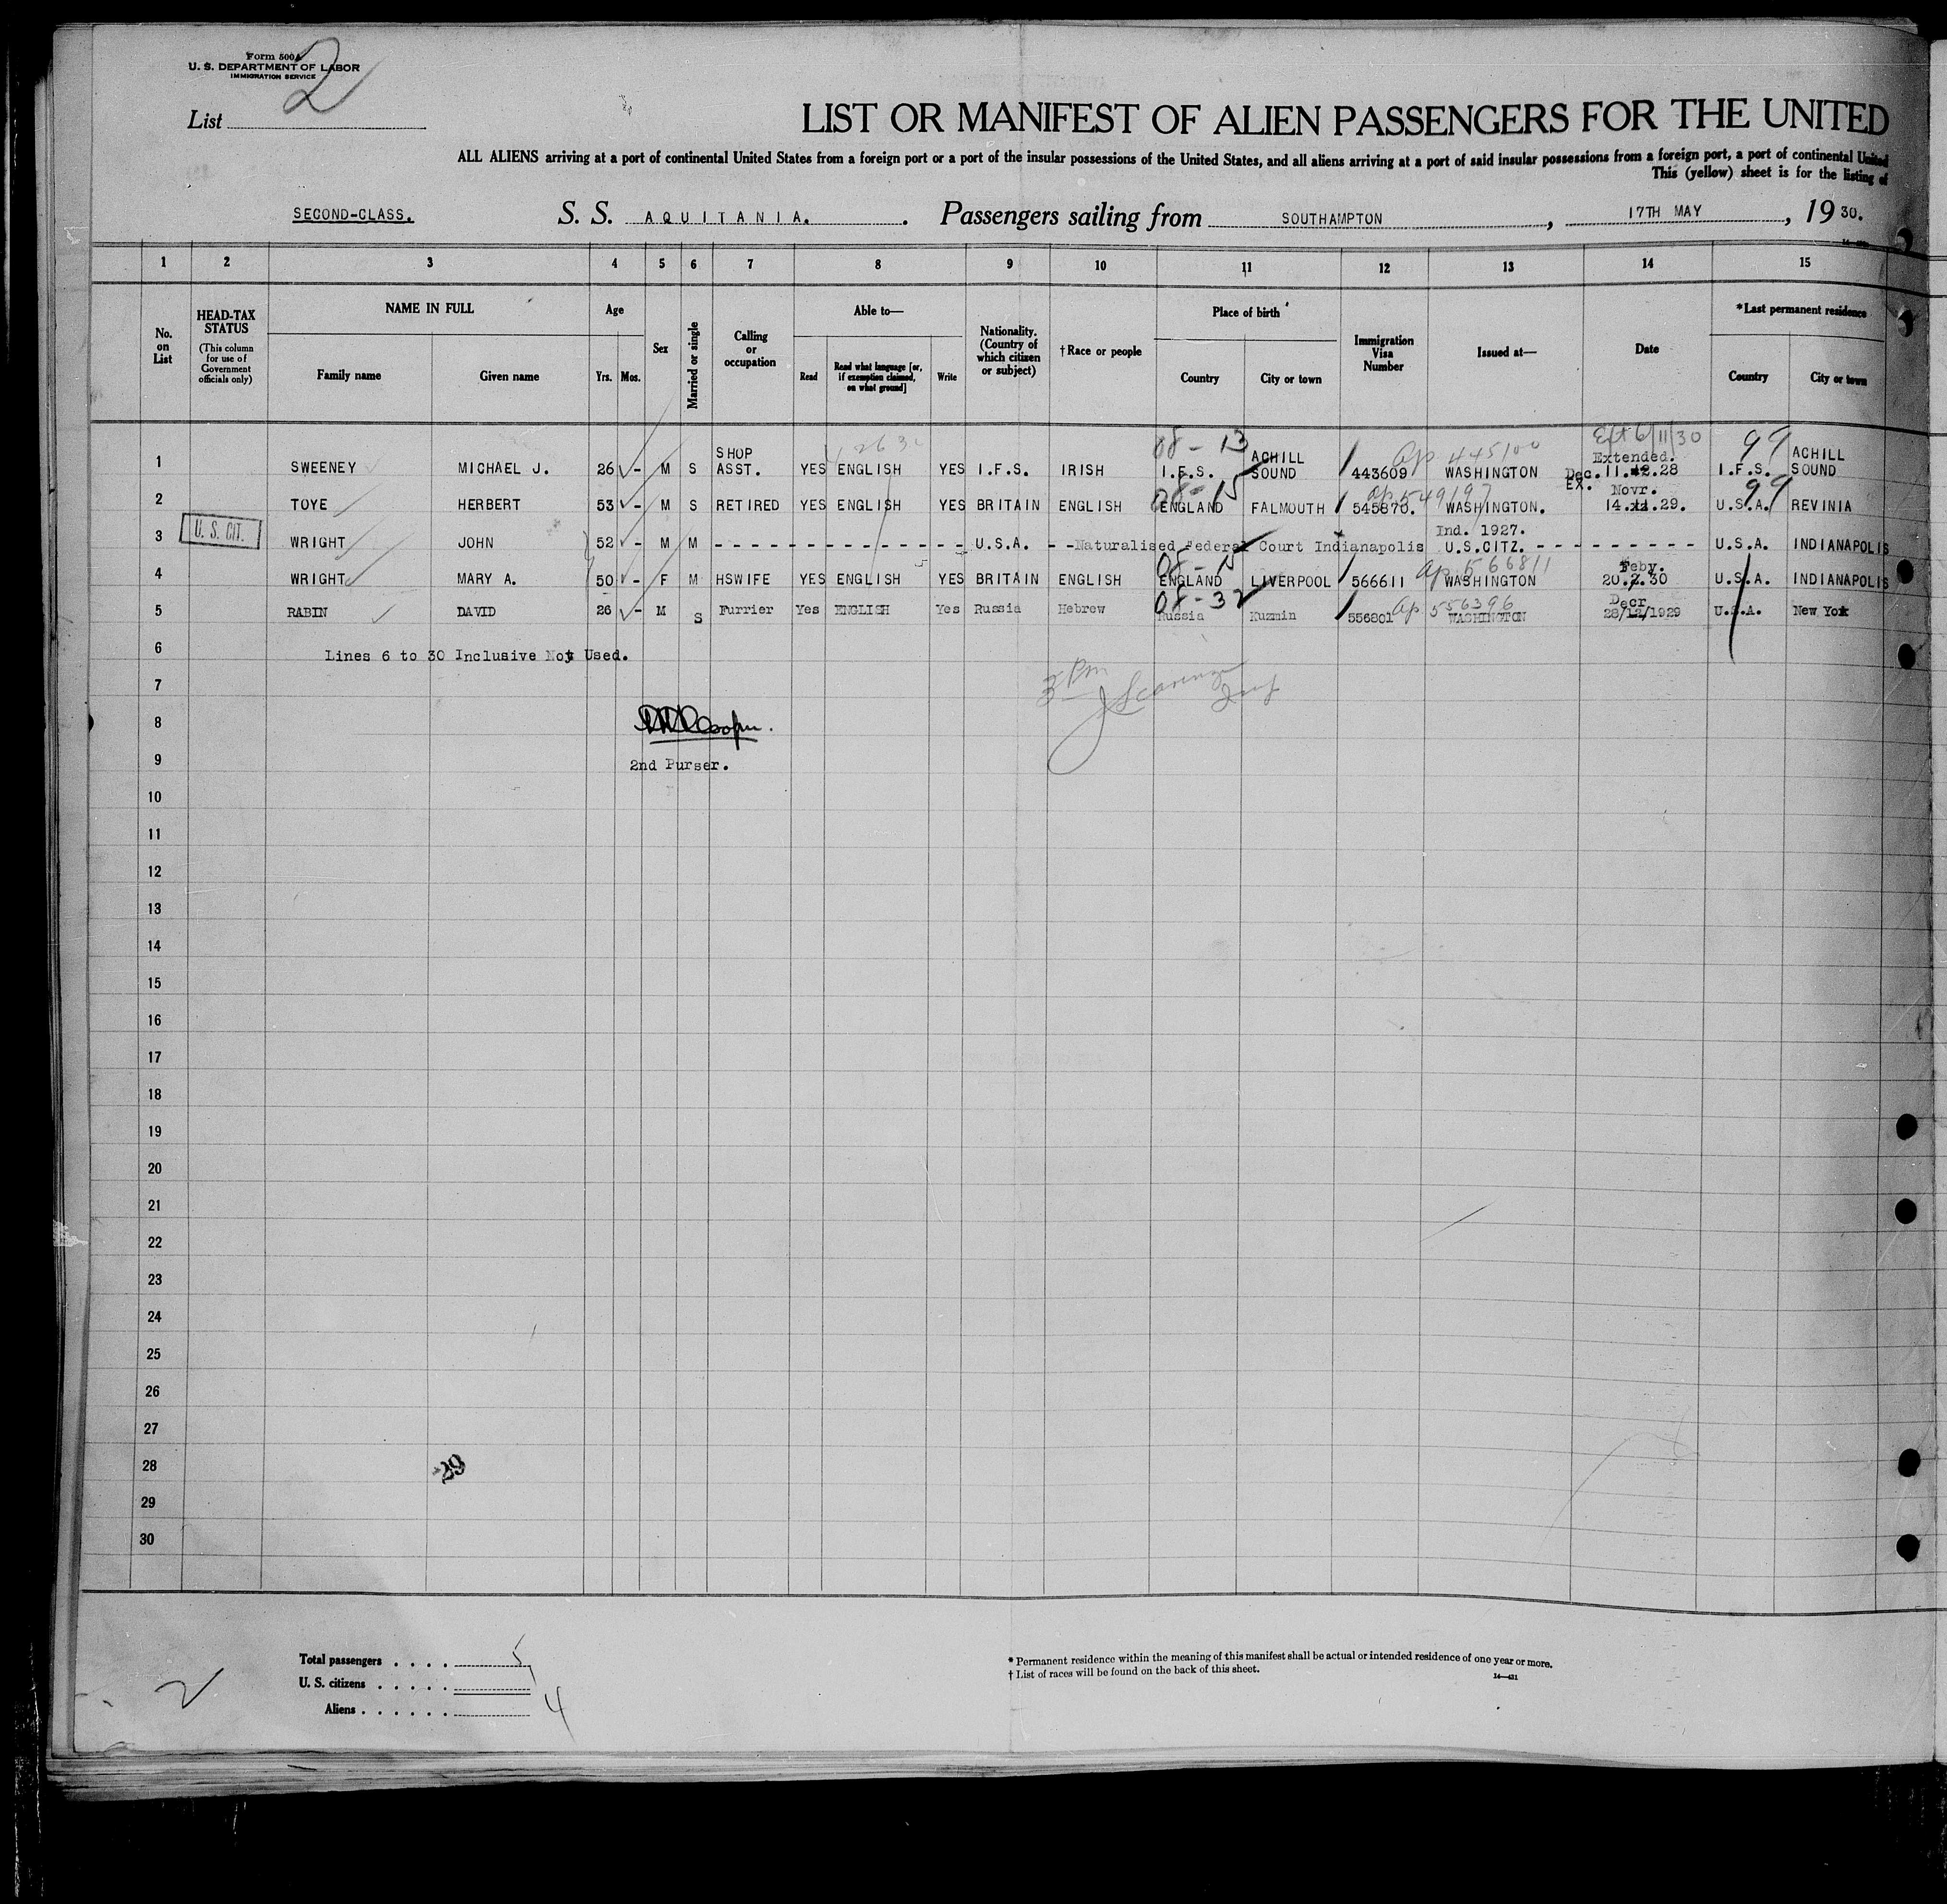 Form 500A
U. S. DEPARTMENT OF LABOR
IMMIGRATION SERVICE
List 2
LIST OR MANIFEST OF ALIEN PASSENGERS FOR THE UNITED
ALL ALIENS arriving at a port of continental United States from a foreign port or a port of the insular possessions of the United States, and all aliens arriving at a port of said insular possessions from a foreign port, a port of continental United
This (yellow) sheet is for the listing of
SECOND-CLASS. S. S. AQUITANIA. Passengers sailing from SOUTHAMPTON, 17TH MAY, 19 30.
1 2 3 4 5 6 7 8 9 10 11 12 13 14 15
No. on List
HEAD-TAX STATUS (This column for use of Government officials only)
NAME IN FULL
Family name Given name
Age
Yrs. Mos.
Sex
Married or single
Calling or occupation
Able to—
Read
Read what language [or, if exemption claimed, on what ground]
Write
Nationality. (Country of which citizen or subject)
† Race or people
Place of birth
Country City or town
Immigration Visa Number
Issued at—
Date
* Last permanent residence
Country City or town
1 SWEENEY MICHAEL J. 26 - M S SHOP ASST. YES ENGLISH YES I.F.S. IRISH 08-13 I.F.S. ACHILL SOUND 443609 ap 445100 WASHINGTON Ext 6/11/30 Extended. Dec. 11.12.28 99 I.F.S. ACHILL SOUND
2 TOYE HERBERT 53 - M S RETIRED YES ENGLISH YES BRITAIN ENGLISH 08-15 ENGLAND FALMOUTH 545870. ap 549197 WASHINGTON. EX. Novr. 14.11.29. 99 U.S.A. REVINIA
3 U. S. CIT. WRIGHT JOHN 52 - M M - - - U.S.A. --Naturalised Federal Court Indianapolis Ind. 1927. U.S.CITZ. - - - U.S.A. INDIANAPOLIS
4 WRIGHT MARY A. 50 - F M HSWIFE YES ENGLISH YES BRITAIN ENGLISH 08-15 ENGLAND LIVERPOOL 566611 ap 566811 WASHINGTON Feby. 20.2.30 U.S.A. INDIANAPOLIS
5 RABIN DAVID 26 - M S Furrier Yes ENGLISH Yes Russia Hebrew 08-32 Russia Kuzmin 556801 ap 556396 WASHINGTON Decr 28/12/1929 U.S.A. New York
6 Lines 6 to 30 Inclusive Not Used.
7 3 Pm
8
9 2nd Purser.
10
11
12
13
14
15
16
17
18
19
20
21
22
23
24
25
26
27
28 29
29
30
Total passengers . . . . 5
U. S. citizens . . . . . 1
Aliens . . . . . . 4
2
* Permanent residence within the meaning of this manifest shall be actual or intended residence of one year or more.
† List of races will be found on the back of this sheet.
14—431